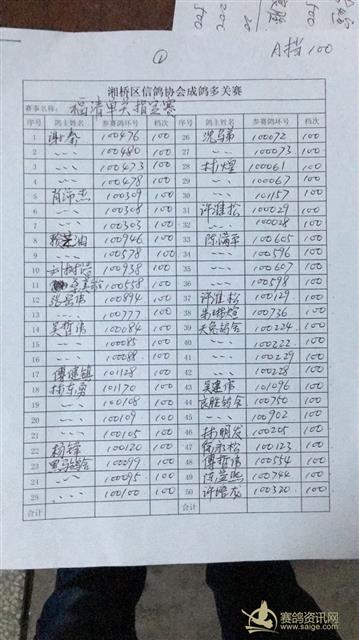 200
500
①
A挡 100
湘桥区信鸽协会成鸽多关赛
赛事名称: 福清单关指定赛
序号 鸽主姓名 参赛鸽环号 档次 序号 鸽主姓名 参赛鸽环号 档次
1 谢春 100476 100 26 100072 100
2 〃 100480 100 27 〃 100073 100
3 〃 100473 100 28 林煌 100061 100
4 〃 100478 100 29 〃 100067 100
5 肖沛杰 100309 100 30 〃 101157 100
6 〃 100308 100 31 许维松 100029 100
7 〃 100303 100 32 〃 100028 100
8 100946 100 33 陈满华 100605 100
9 〃 100578 100 34 〃 100596 100
10 100938 100 35 〃 100607 100
11 100558 100 36 〃 100598 100
12 100894 100 37 许维松 100129 100
13 〃 100777 100 38 100736 100
14 吴哲伟 100084 100 39 100224 100
15 〃 100085 100 40 〃 100222 100
16 〃 100088 100 41 〃 100229 100
17 傅健镇 101128 100 42 〃 100228 100
18 林东勇 101170 100 43 吴建伟 101096 100
19 〃 100108 100 44 100750 100
20 〃 100109 100 45 〃 100902 100
21 〃 100105 100 46 林明发 100205 100
22 杨锋 100120 100 47 100123 100
23 100099 100 48 傅哲伟 100554 100
24 〃 100095 100 49 100744 100
25 〃 100100 100 50 100320 100
合计 合计
赛鸽资讯网
www.saige.com